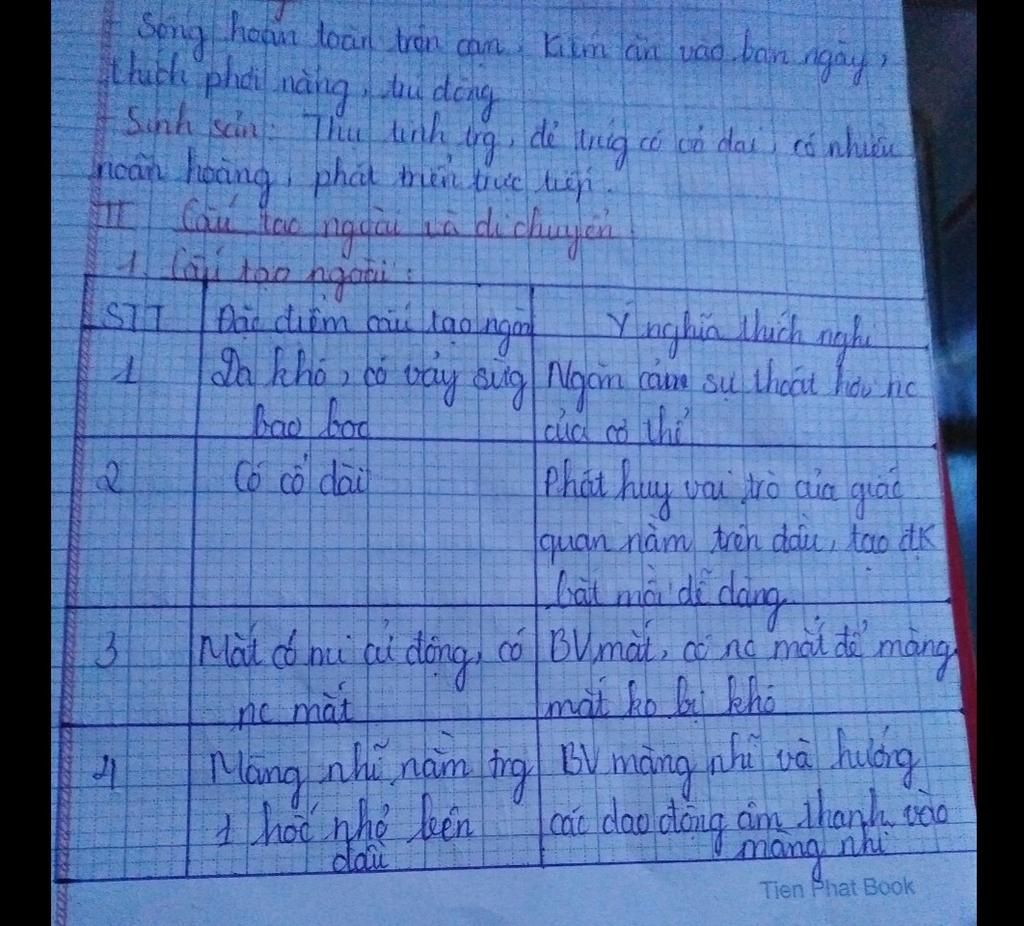 - Sống hoàn toàn trên cạn, kiếm ăn vào ban ngày,
thích phơi nắng, trú đông
- Sinh sản: Thụ tinh trg, đẻ trứg có vỏ dai, có nhiều
noãn hoàng, phát triển trực tiếp.
II Cấu tạo ngoài và di chuyển
1. Cấu tạo ngoài:
STT Đặc điểm cấu tạo ngoài Ý nghĩa thích nghi
1 Da khô, có vảy sừg Ngăn cản sự thoát hơi nc
bao bọc của cơ thể
2 Có cổ dài Phát huy vai trò của giác
quan nằm trên đầu, tạo đK
bắt mồi dễ dàng
3 Mắt có mi cử động, có BV mắt, có nc mắt để màng
nc mắt mắt ko bị khô
4 Màng nhĩ nằm trg BV màng nhĩ và hướng
1 hốc nhỏ bên các dao động âm thanh vào
đầu màng nhĩ
Tien Phat Book